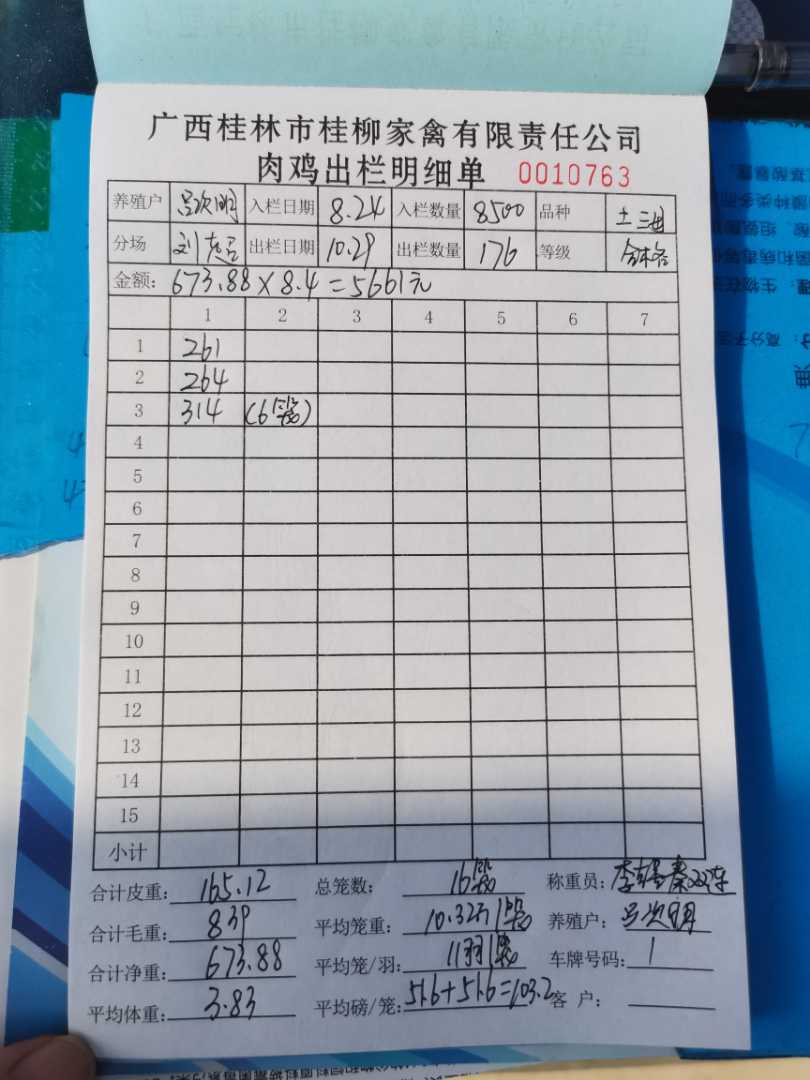 广西桂林市桂柳家禽有限责任公司
肉鸡出栏明细单 0010763
养殖户 吕次明 入栏日期 8.24 入栏数量 8500 品种 土三
分场 刘 出栏日期 10.29 出栏数量 176 等级 合格
金额: 673.88×8.4=5661元
1 2 3 4 5 6 7
1 261
2 264
3 314 (6笼)
4
5
6
7
8
9
10
11
12
13
14
15
小计
合计皮重: 165.12 总笼数: 16笼 称重员:
合计毛重: 839 平均笼重: 10.32斤/笼 养殖户: 吕次明
合计净重: 673.88 平均笼/羽: 11羽/笼 车牌号码: 1
平均体重: 3.83 平均磅/笼: 51.6+51.6=103.2 客 户: